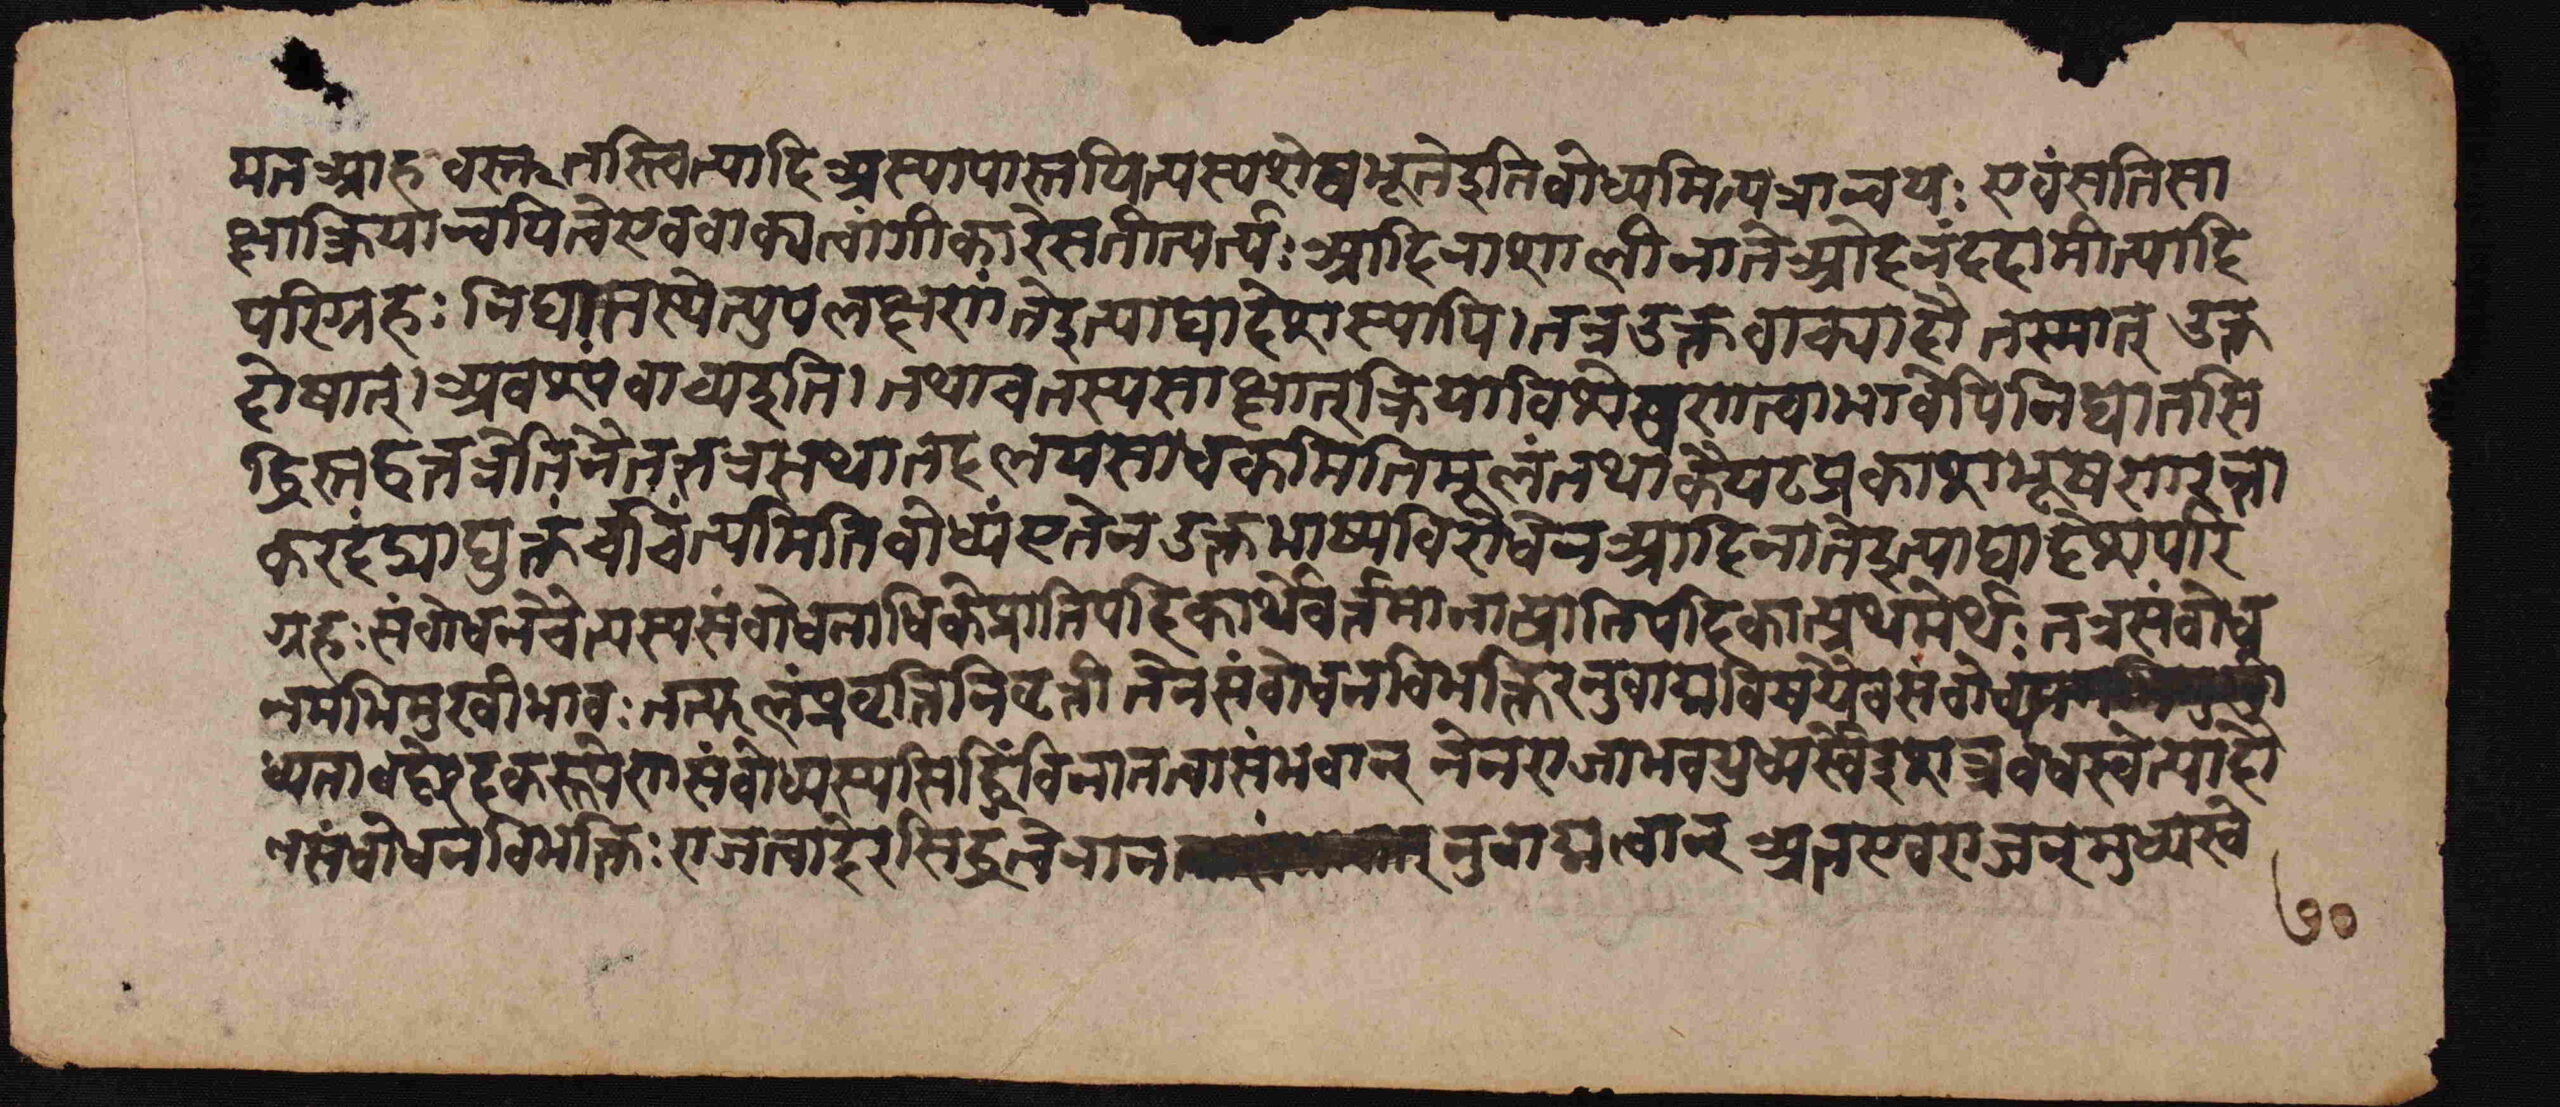 यत आह वस्तुतस्त्वित्यादि अस्यापास्तमित्यस्य शेषभूते इति बोध्यमित्यत्रान्वयः एवं सति सा
क्षात्क्रियान्वयित्वे एव वाक्यत्वांगीकारे सतीत्यर्थः आदिना शालीनां ते ओदनं ददामीत्यादि
परिग्रहः निघातस्येत्युपलक्षणं ते इत्याद्यादेशस्यापि । तत्र उक्तवाक्यादौ तस्मात् उक्त
दोषात् । अवश्यं वाच्य इति । तथा च तस्य साक्षात्क्रियाविशेषणत्वाभावेपि निघातसि
द्धिस्तद्वत्तत्रेति नैतत्सूत्रस्थानदलयसाधकमिति मूलं तथा कैयटप्रकाशभूषणरत्ना
करदंद्याद्युक्तं च चिंत्यमिति बोध्यं एतेन उक्तभाष्यविरोधेन आदिना ते इत्याद्यादेशपरि
ग्रहः संबोधने चेत्यस्य संबोधनाधिके प्रातिपदिकार्थे वर्त्तमानात्प्रातिपदिकात्प्रथमेर्थः तत्र संबोध
नमभिमुखीभावः तत्फलं प्रवृत्तिनिवृत्ती तेन संबोधनविभक्तिरनुवाद्यविषयैव संबोध्य
ध्यतावछेदकरूपेण संबोध्यस्य सिद्धिं विना तत्वासंभवात् तेन राजा भव युध्यस्वेंद्रशत्रो वर्धस्वेत्यादौ
न संबोधनविभक्तिः राजत्वादेरसिद्धत्वेनान नुवाद्यत्वात् अत एव राजन् युध्यस्वे
७०